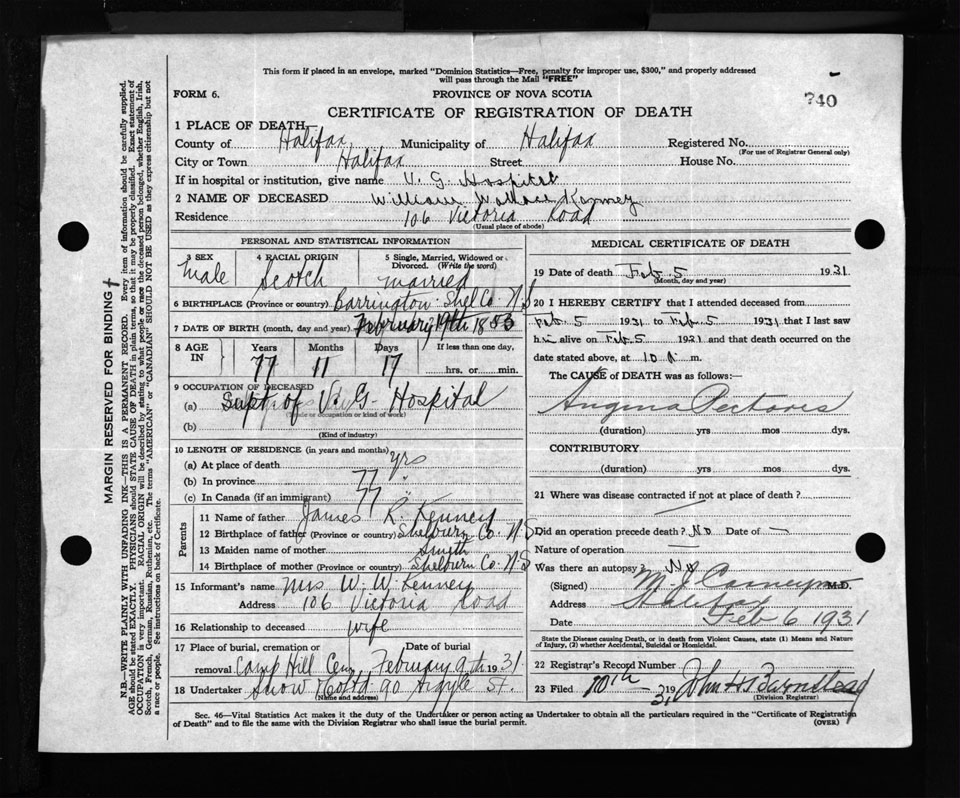 This form if placed in an envelope, marked "Dominion Statistics—Free, penalty for improper use, $300," and properly addressed
will pass through the Mail "FREE"
FORM 6.
PROVINCE OF NOVA SCOTIA
740
CERTIFICATE OF REGISTRATION OF DEATH
1 PLACE OF DEATH
County of Halifax Municipality of Halifax Registered No.
(For use of Registrar General only)
City or Town Halifax Street House No.
If in hospital or institution, give name V. G. Hospital
2 NAME OF DECEASED William Wallace Kenney
Residence 106 Victoria Road
(Usual place of abode)
PERSONAL AND STATISTICAL INFORMATION
3 SEX 4 RACIAL ORIGIN 5 Single, Married, Widowed or
Divorced. (Write the word)
Male Scotch married
6 BIRTHPLACE (Province or country) Barrington Shel Co. N.S
7 DATE OF BIRTH (month, day and year) February 19th 1853
8 AGE IN Years Months Days If less than one day,
77 11 17 hrs. or min.
9 OCCUPATION OF DECEASED
(a) Supt of V. G. Hospital
(b)
(Kind of industry)
10 LENGTH OF RESIDENCE (in years and months)
(a) At place of death yrs
(b) In province 77 "
(c) In Canada (if an immigrant) 77 "
Parents
11 Name of father James R. Kenney
12 Birthplace of father (Province or country) Shelburn Co. N.S
13 Maiden name of mother Smith
14 Birthplace of mother (Province or country) Shelburn Co. N.S
15 Informant's name Mrs W. W. Kenney
Address 106 Victoria Road
16 Relationship to deceased wife
17 Place of burial, cremation or Date of burial
removal Camp Hill Cem February 9th 1931
18 Undertaker Snow & Co Ltd 90 Argyle St.
(Name and address)
MEDICAL CERTIFICATE OF DEATH
19 Date of death Feb. 5 1931
(Month, day and year)
20 I HEREBY CERTIFY that I attended deceased from
Feb. 5 1931 to Feb. 5 1931 that I last saw
him alive on Feb. 5 1921 and that death occurred on the
date stated above, at 10 m.
The CAUSE of DEATH was as follows:—
Angina Pectoris
(duration) yrs mos dys.
CONTRIBUTORY
(duration) yrs mos dys.
21 Where was disease contracted if not at place of death?
Did an operation precede death? No Date of —
Nature of operation —
Was there an autopsy? No
(Signed) M. J. M.D.
Address Halifax
Date Feb 6 1931
State the Disease causing Death, or in death from Violent Causes, state (1) Means and Nature
of Injury, (2) whether Accidental, Suicidal or Homicidal.
22 Registrar's Record Number
23 Filed 10th 1931 John H Barnstead
(Division Registrar)
Sec. 46—Vital Statistics Act makes it the duty of the Undertaker or person acting as Undertaker to obtain all the particulars required in the "Certificate of Registration
of Death" and to file the same with the Division Registrar who shall issue the burial permit.
(OVER)
MARGIN RESERVED FOR BINDING
N.B.—WRITE PLAINLY WITH UNFADING INK—THIS IS A PERMANENT RECORD. Every item of information should be carefully supplied.
AGE should be stated EXACTLY. PHYSICIANS should STATE CAUSE OF DEATH in plain terms, so that it may be properly classified. Exact statement of
OCCUPATION is very important. RACIAL ORIGIN will be described by stating to what people or race the deceased person belonged, whether English, Irish,
Scotch, French, German, Russian, Ruthenian, etc. The terms "AMERICAN" or "CANADIAN" SHOULD NOT BE USED as they express citizenship but not
a race or people. See instructions on back of Certificate.